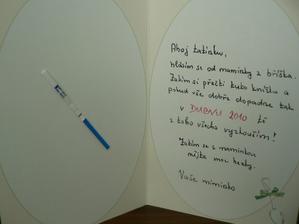 Ahoj tatínku,
hlásím se od maminky z bříška.
Zatím si přečti tuto knížku a
pokud vše dobře dopadne tak
v DUBNU 2010 tě
z toho všeho vyzkouším!
Zatím se s maminkou
mějte moc hezky.
Vaše miminko